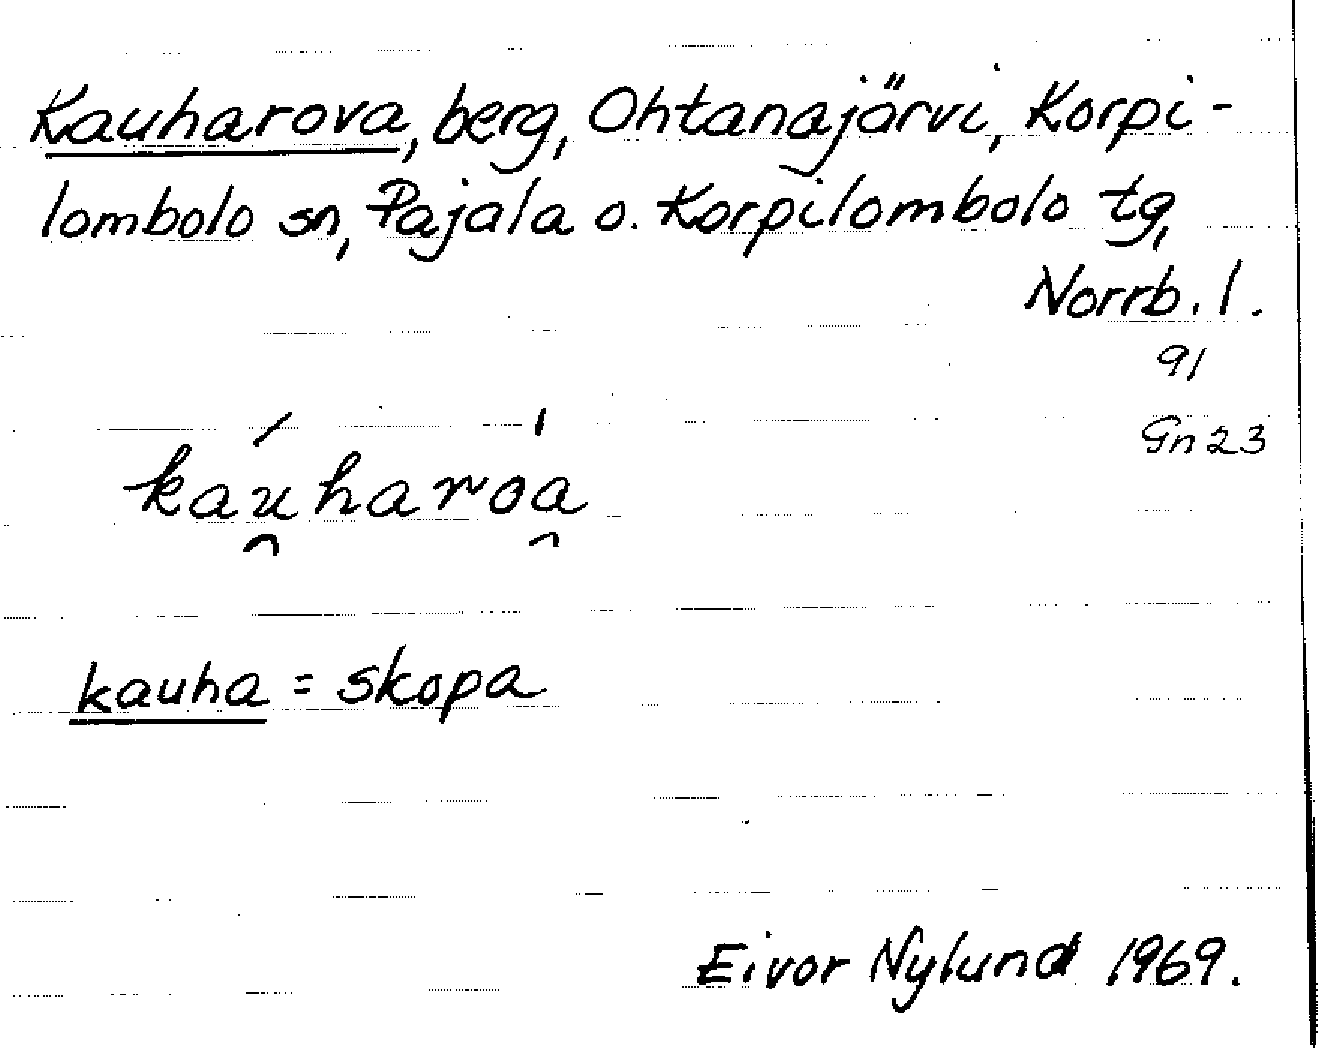 Kauharova, berg, Ohtanajärvi, Korpi-
lombolo sn, Pajala o. Korpilombolo tg,
Norrb. l.
91
Gn 23
kau̯haroa̯
kauha = skopa
Eivor Nylund 1969.